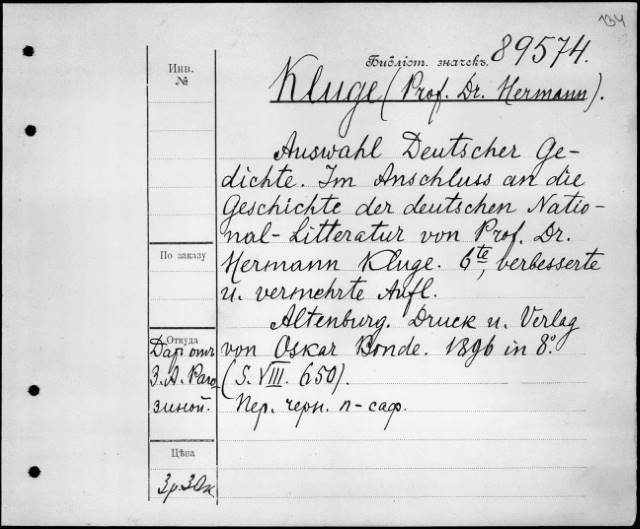 134
Библіот. значекъ. 89574.
Инв.
№
Kluge (Prof. Dr. Hermann).
Auswahl Deutscher Ge-
dichte. Im Anschluss an die
Geschichte der deutschen Natio-
nal-Litteratur von Prof. Dr.
Hermann Kluge. 6te, verbesserte
u. vermehrte Aufl.
Altenburg. Druck u. Verlag
von Oskar Bonde. 1896 in 8°.
(S. VIII. 650).
Пер. черн. п-саф.
По заказу
Откуда
Дар отъ
З. А. Раго-
зиной.
Цѣна
3р.30к